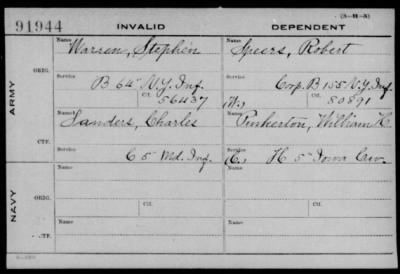 (3-M-A)
91944 INVALID DEPENDENT
Name Name
Warren, Stephen Speers, Robert
ORIG.
Service Service
B 64" N.Y. Inf. Corp. B 155 N.Y. Inf.
Ctf. 56437 (W.) Ctf. 80891
ARMY
Name Name
Sanders, Charles Pinkerton, William H.
CTF.
Service Service
C 5" Md. Inf. (C.) H 5" Iowa Cav.
Name Name
ORIG.
Service Ctf. Service Ctf.
NAVY
Name Name
CTF.
Service Service